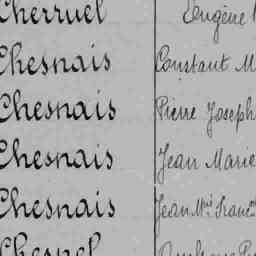 Cherruel Eugène
Chesnais Constant M
Chesnais Pierre Joseph
Chesnais Jean Marie
Chesnais Jean Mie Franc
Chesnel